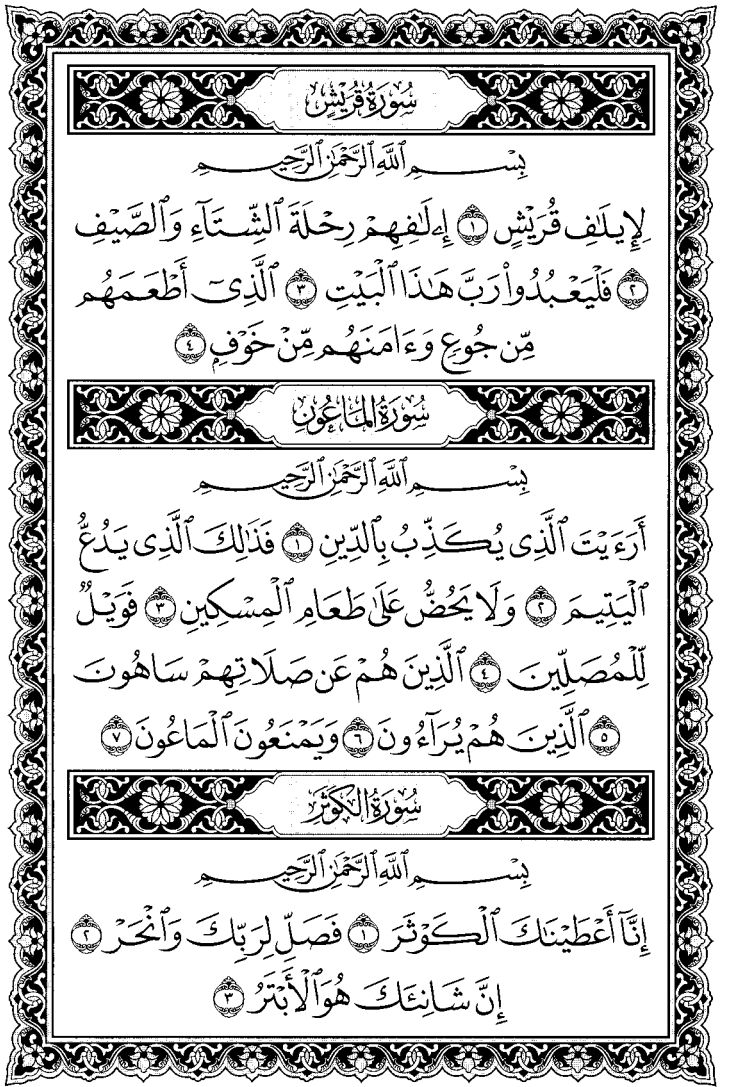 سُورَةُ قُرَيْشٍ
بِسْمِ ٱللَّهِ ٱلرَّحْمَٰنِ ٱلرَّحِيمِ
لِإِيلَٰفِ قُرَيْشٍ ١ إِۦلَٰفِهِمْ رِحْلَةَ ٱلشِّتَآءِ وَٱلصَّيْفِ
٢ فَلْيَعْبُدُوا۟ رَبَّ هَٰذَا ٱلْبَيْتِ ٣ ٱلَّذِىٓ أَطْعَمَهُم
مِّن جُوعٍ وَءَامَنَهُم مِّنْ خَوْفٍۭ ٤
سُورَةُ الْمَاعُونِ
بِسْمِ ٱللَّهِ ٱلرَّحْمَٰنِ ٱلرَّحِيمِ
أَرَءَيْتَ ٱلَّذِى يُكَذِّبُ بِٱلدِّينِ ١ فَذَٰلِكَ ٱلَّذِى يَدُعُّ
ٱلْيَتِيمَ ٢ وَلَا يَحُضُّ عَلَىٰ طَعَامِ ٱلْمِسْكِينِ ٣ فَوَيْلٌ
لِّلْمُصَلِّينَ ٤ ٱلَّذِينَ هُمْ عَن صَلَاتِهِمْ سَاهُونَ
٥ ٱلَّذِينَ هُمْ يُرَآءُونَ ٦ وَيَمْنَعُونَ ٱلْمَاعُونَ ٧
سُورَةُ الْكَوْثَرِ
بِسْمِ ٱللَّهِ ٱلرَّحْمَٰنِ ٱلرَّحِيمِ
إِنَّآ أَعْطَيْنَٰكَ ٱلْكَوْثَرَ ١ فَصَلِّ لِرَبِّكَ وَٱنْحَرْ ٢
إِنَّ شَانِئَكَ هُوَ ٱلْأَبْتَرُ ٣